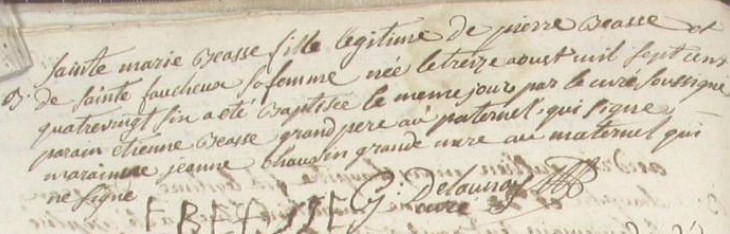 Sainte marie Beasse fille legitime de pierre Beasse et
B. de Sainte faucheux sa femme née le treize aoust mil sept cens
quatrevingt sin a eté Baptisée le meme jour par le curé soussigné
parain etienne Beasse grand pere au paternel qui signe
maraine jeanne chaudin grande mere au maternel qui
ne signe
G: Delaunay
curé